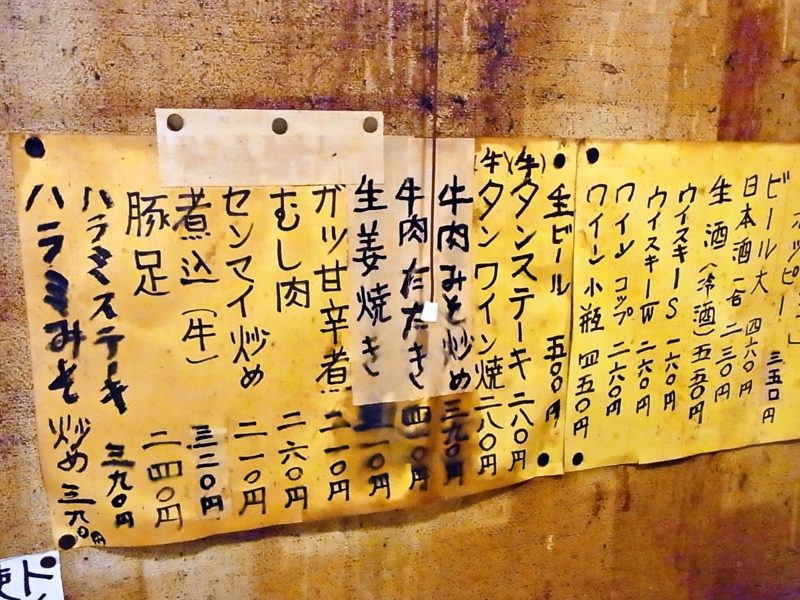 ビール大 四六〇円
日本酒(一合)二三〇円
生酒(冷酒)五五〇円
ウイスキーS 一六〇円
ウイスキーW 二六〇円
ワイン コップ 二六〇円
ワイン小瓶 四五〇円
生ビール 五〇〇円
(牛)タンステーキ 二八〇円
(牛)タンワイン焼 二八〇円
牛肉みそ炒め 三九〇円
牛肉たたき 四一〇円
生姜焼き
ガツ甘辛煮 二一〇円
むし肉 二六〇円
センマイ炒め 二一〇円
煮込(牛) 三二〇円
豚足 二四〇円
ハラミステーキ 三九〇円
ハラミみそ炒め 三九〇円